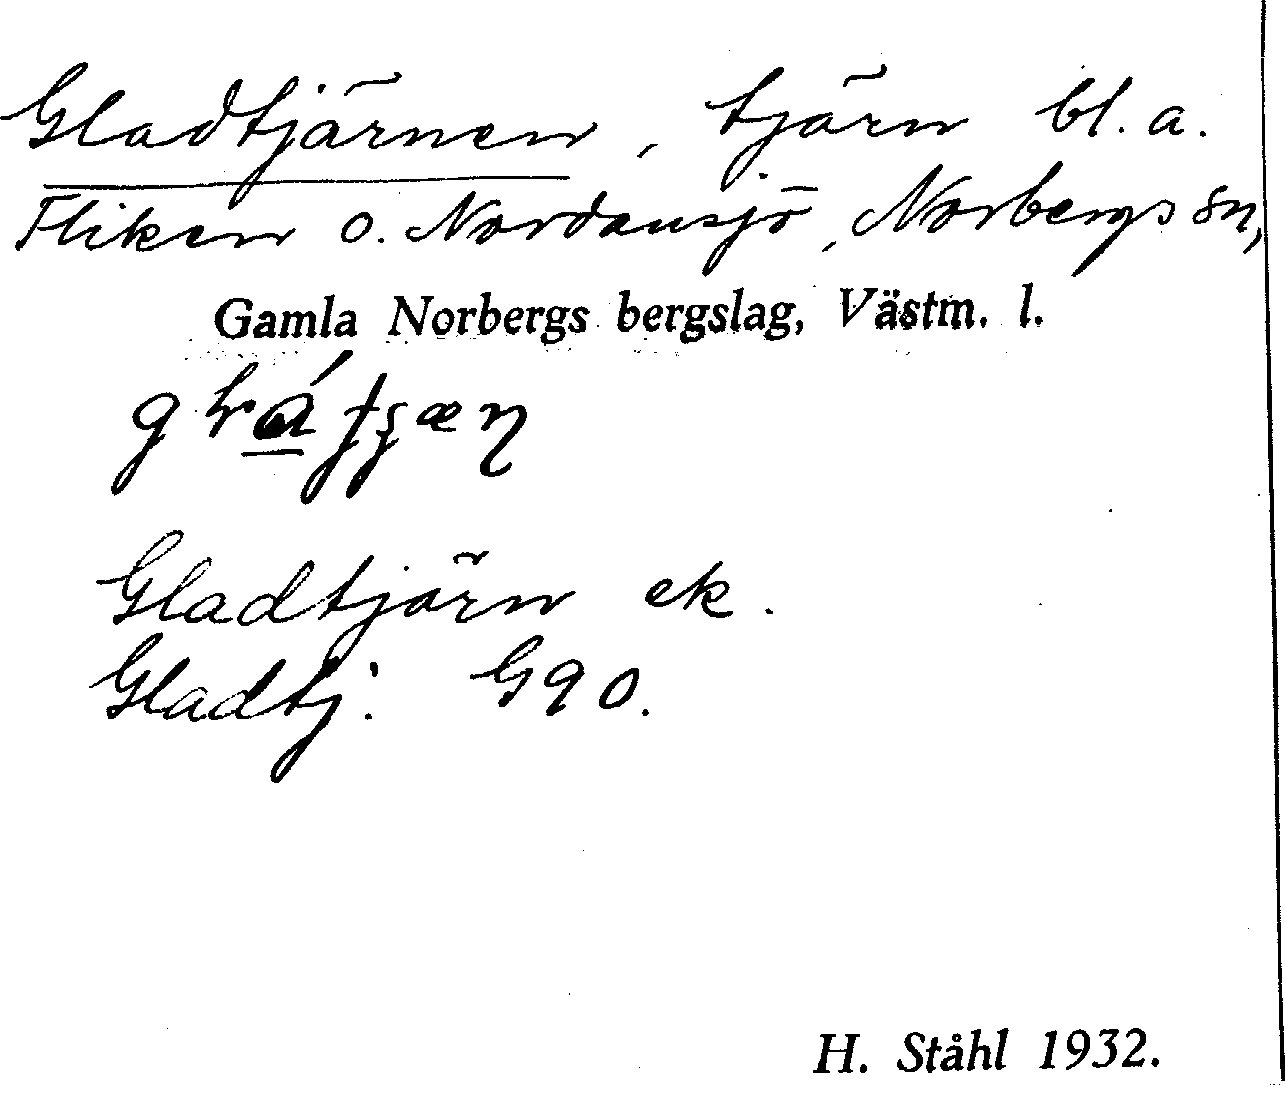 Gladtjärnen, tjärn bl. a.
Fliken o. Nordansjö, Norbergs sn,
Gamla Norbergs bergslag, Västm. l.
Gladtjärn ek.
Gladtj: G90.
H. Ståhl 1932.